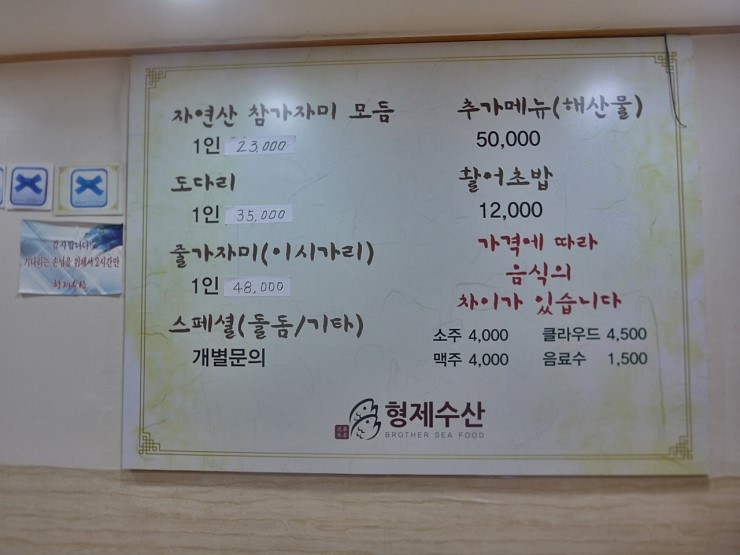 자연산 참가자미 모듬
1인 23,000
도다리
1인 35,000
줄가자미(이시가리)
1인 48,000
스페셜(돌돔/기타)
개별문의
추가메뉴(해산물)
50,000
활어초밥
12,000
가격에 따라
음식의
차이가 있습니다
소주 4,000 클라우드 4,500
맥주 4,000 음료수 1,500
형제수산
BROTHER SEA FOOD
감사합니다!
기다리는 손님을 위해서 2시간만
형제수산